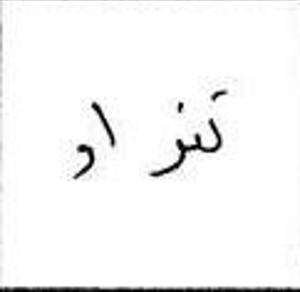 تنر او